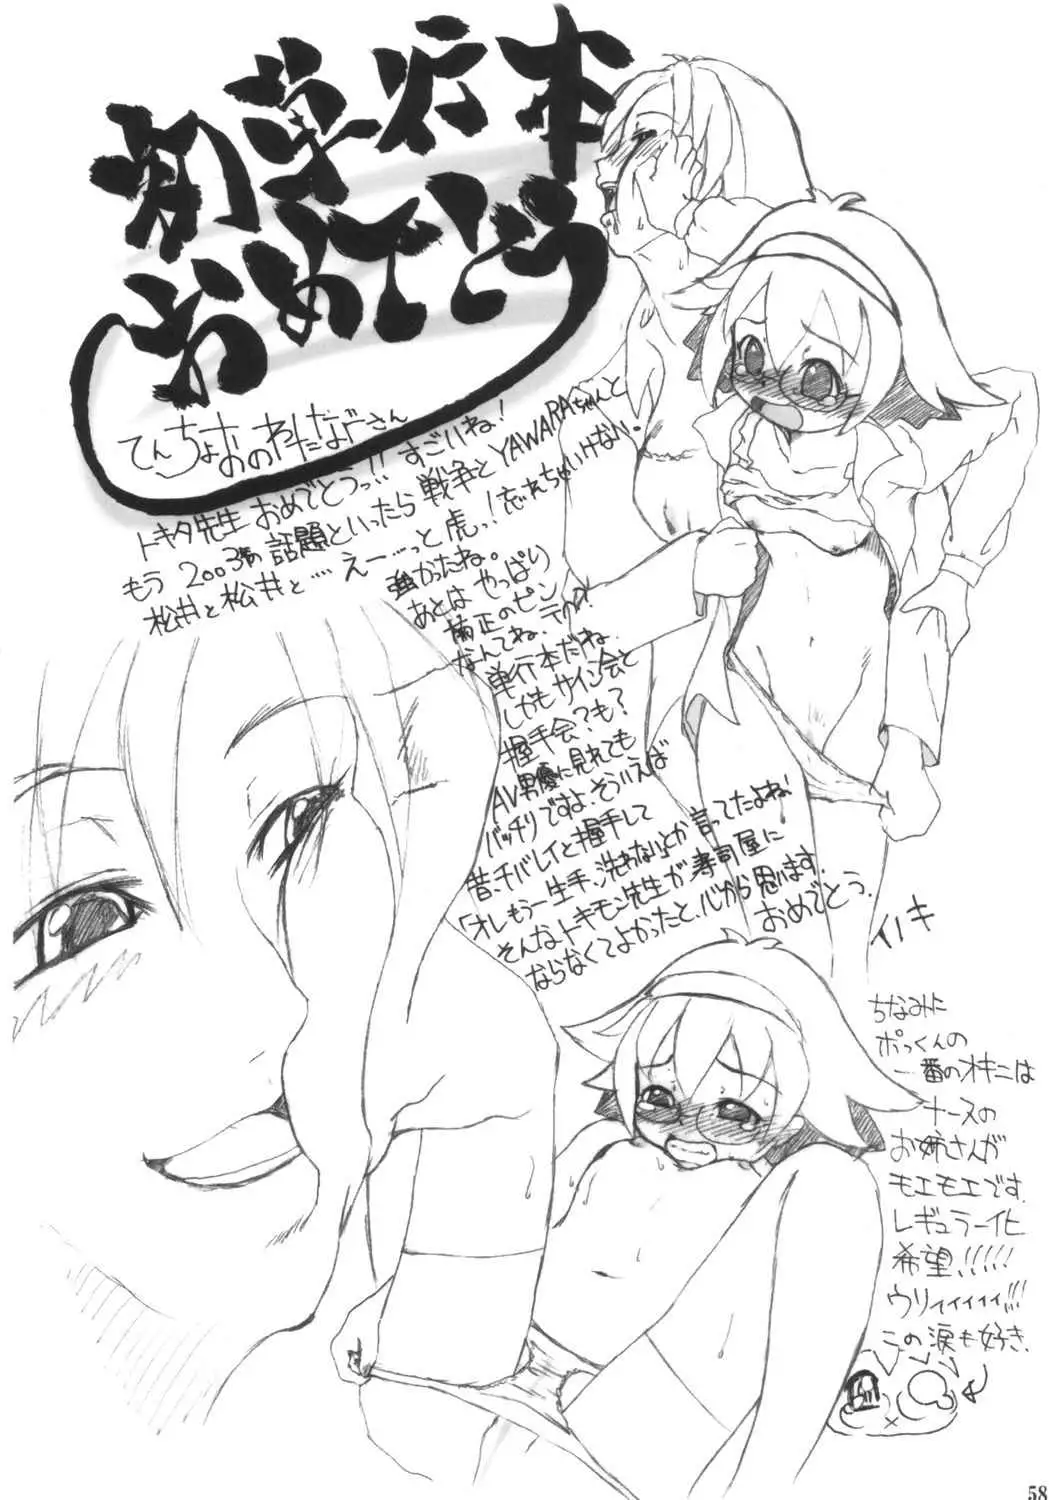 初単行本
おめでとう
てんちょおのわたなべさん
トキタ先生おめでとうっ!!すごいね!
もう2003年の話題といったら戦争とYAWARAちゃんと
松井と松井と‥‥えーーっと虎っ!忘れちゃいけない。
強かったね。
あとはやっぱり
補正のピン
なんてね、テヘッ!
単行本だね
しかもサイン会と
握手会?も?
AV男優に見れても
バッチリですよ。そういえば
昔、チバレイと握手して
「オレもう一生手、洗わない」とか言ってたよね!
そんなトキモン先生が寿司屋に
ならなくてよかったと、心から思います。
おめでとう.
イノキ
ちなみに
ポっくんの
一番のオキニは
ナースの
お姉さんが
モエモエです.
レギュラー化
希望!!!!!
ウリィィィィィ!!!
この涙も好き.
×
58